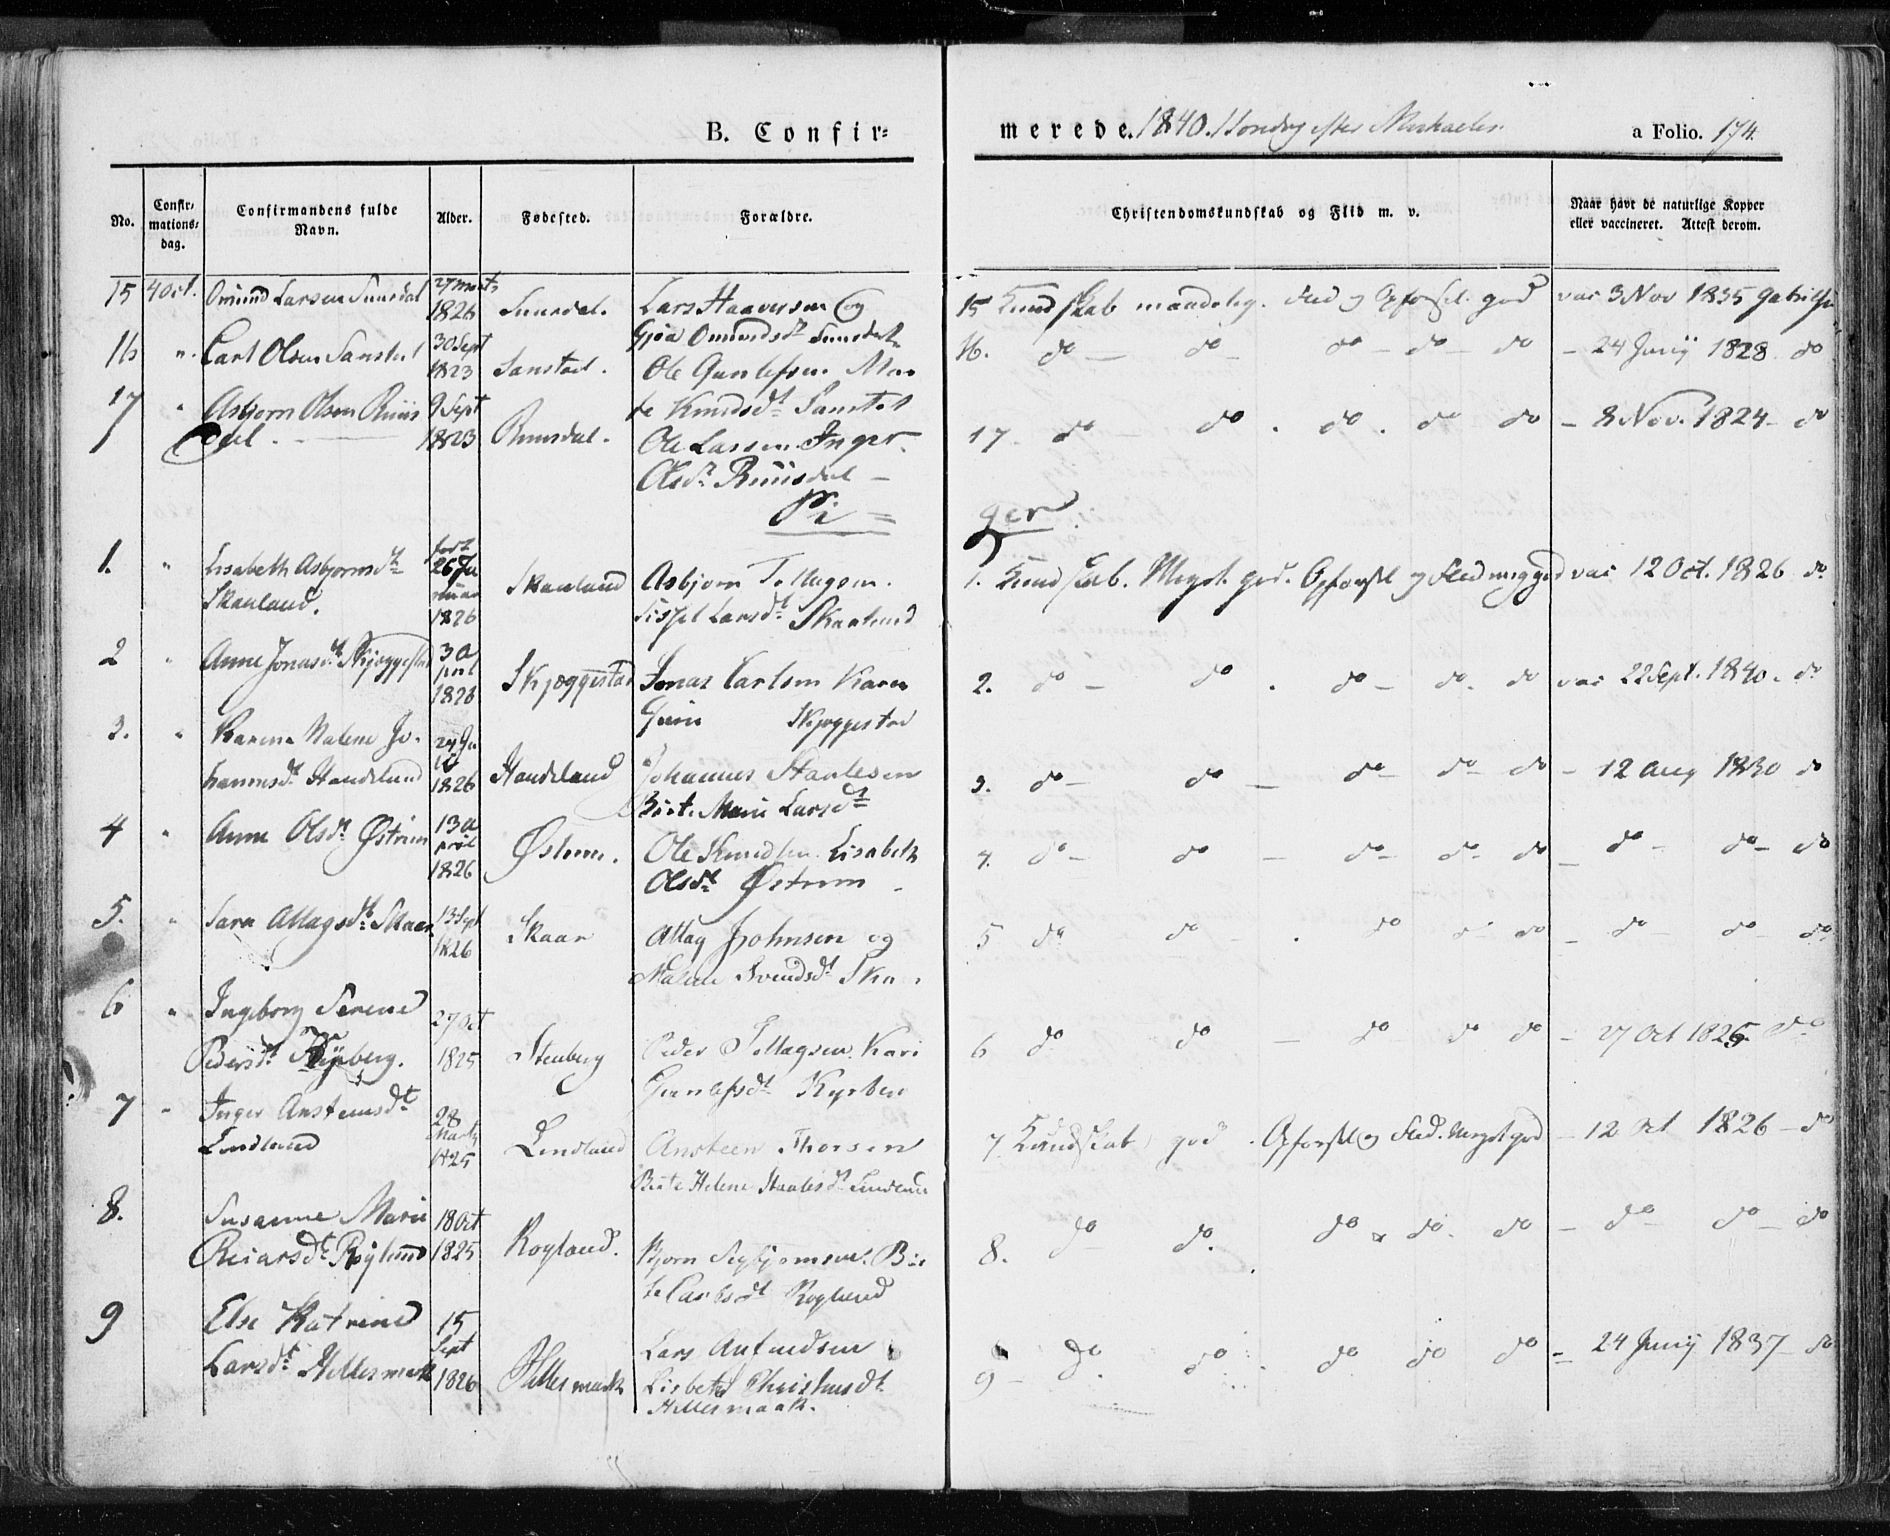 B. Confir=
merede. 1840. 1 Søndag efter Michaelis.
a Folio. 174.
No.
Confir-
mations-
dag.
Confirmandens fulde
Navn.
Alder.
Fødested.
Forældre.
Christendomskundskab og Flid m. v.
Naar havt de naturlige Kopper
eller vaccineret. Attest derom.
15 4 Oct. Omund Larsen Suusdal 27 Marts 1826 Suusdal. Lars Haaversen og
Gjøa Omundsdt Suusdal
15 Kundskab maadelig. Flid og Opførsel god vac 3 Nov 1835
16 " Carl Olsen Sanstøl 30 Sept 1823 Sanstøl. Ole Gunlefsen Mar
te Knudsdt Sanstøl
16. do — do — do — do — do — 24 Junij 1828 do
17 " Asbjørn Olsen Ruus
dal. 9 Sept 1823 Ruusdal. Ole Larsen Inger
Olsdt Ruusdal —
17. do do . do . do do — 8 Nov. 1824 — do
Pi=
ger
1. " Lisabeth Asbjørnsdt
Skaaland. født 26 Ja
nuar 1826 Skaaland Asbjørn Tollagsen.
Sissel Larsdt Skaaland
1. Kundskab. Meget god. Opførsel og Flid meg god vac 12 Oct. 1826 do
2 " Anne Jonasdt Skjæggestad 3 A
pril 1826 Skjæggestad Jonas Carlsen Karen
Skjæggestad
2. do — do . do — do . do vac 22 Sept. 1840. do
3. " Karen Malene Jo-
hannesdt Handeland 24 1826 Handeland Johannes Staalesen
Birt. Marie Larsdt
3. do — do — do — do — do — 12 Aug 1830 do
4 " Anne Olsdt Østrem 13 A
pril 1826 Østrem. Ole Knudsen Lisabeth
Olsdt Østrem —
4. do — do — do — do — do — do — do — do
5. " Sara Attagsdt Skaar 13 Sept 1826 Skaar Attag Johnsen og
Malene Svendsdt Ska
5 do do — . do do — do — do — do
6 " Ingeborg Serene
Pedersdt 27 Oct 1825 Stenberg Peder Tollagsen Kari
Gunlefsdt
6 do do — do — do do — 27 Oct 1825 do
7 " Inger Anstensdt
Lindland 28 Marts 1825 Lindland Ansteen Thorsen
Birte Helene Staalesdt Lindland
7. Kundskab god . Opførsel og Flid. Meget god — 12 Oct 1826 — do
8. Susanne Marie
Reiarsdt Røyland 18 Oct 1825 Royland. Bjørn Bir
te Carlsdt Røyland
8. do do. do do. do — do — do — do
9 Else Katrine
Larsdt Hellesmark 15
Sept
1826 Hellesmark Lars Anfindsen
Lisbeth
Hellesmark.
9 — do. do . do do do = 24 Junij 1837 — do